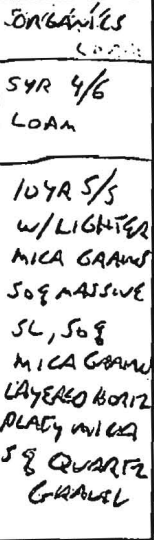 5 ORGANICS
LOAM
5YR 4/6
LOAM
10YR 5/5
W/LIGHTER
MICA GRAINS
50% MASSIVE
SL, 50%
MICA GRAINS
LAYERED HORIZ
PLATY MICA
5% QUARTZ
GRAVEL